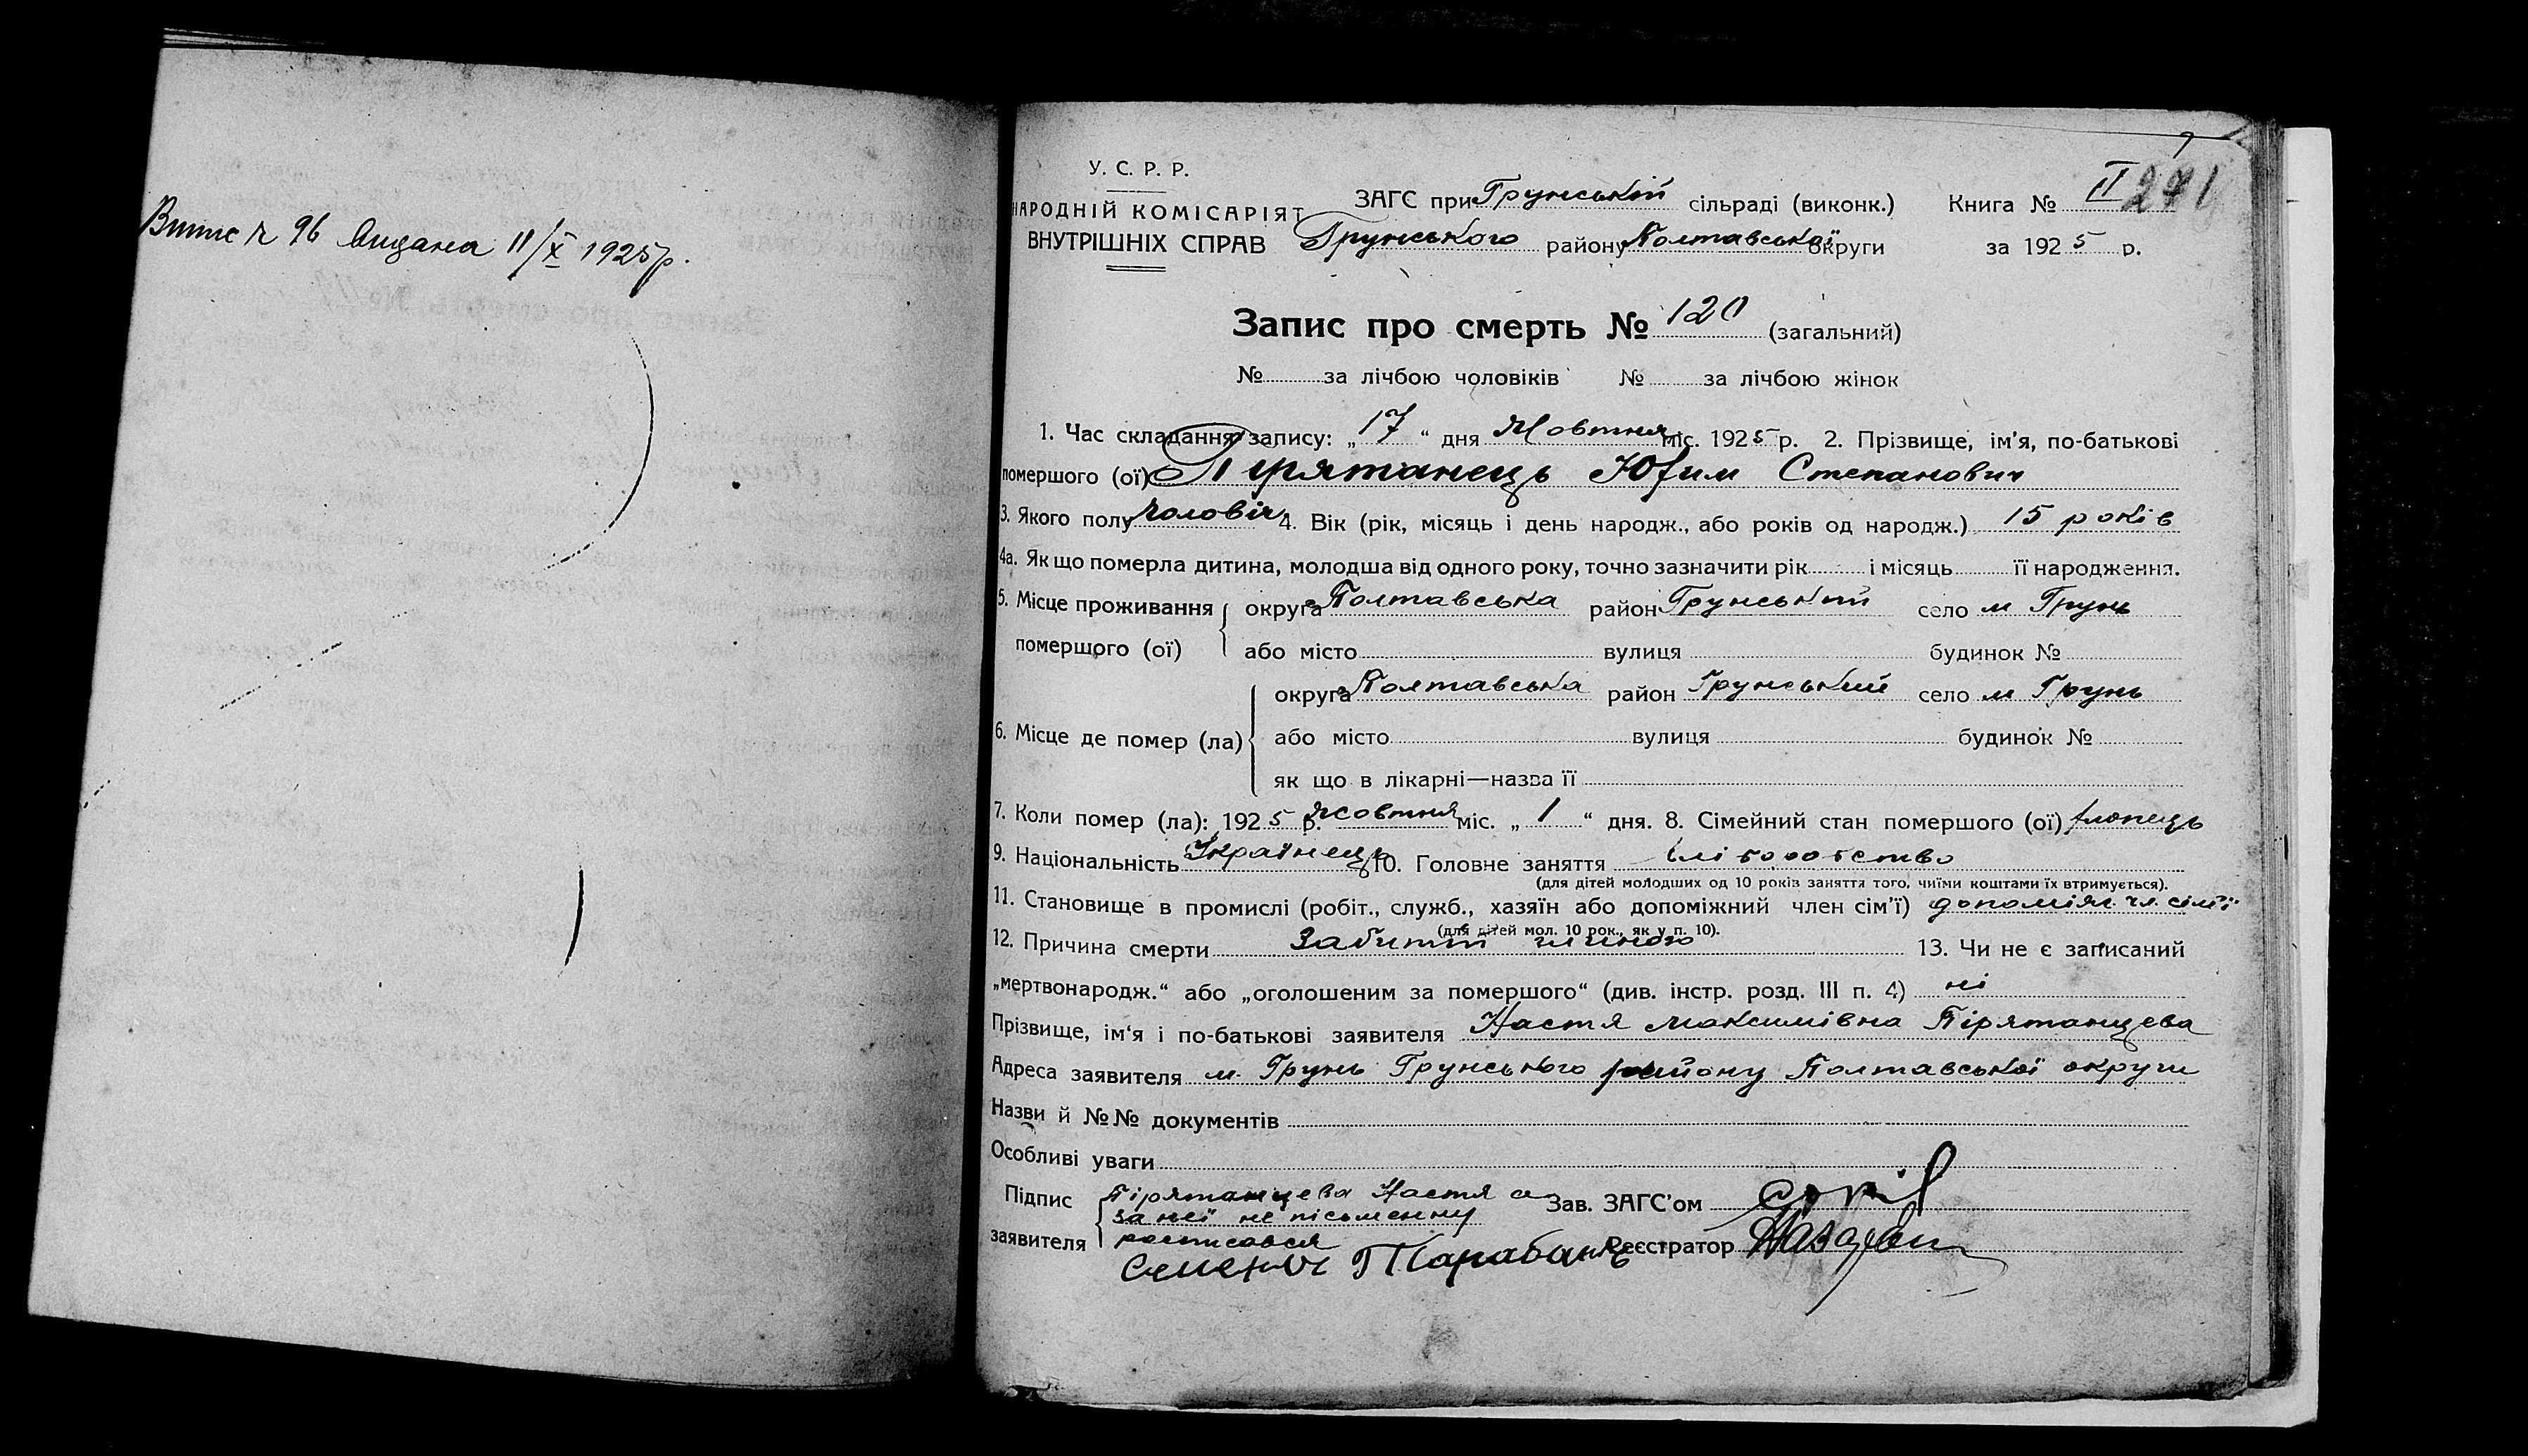 Випис ч 96 видана 11/X 1925 р.
У. С. Р. Р.
НАРОДНІЙ КОМІСАРІЯТ
ВНУТРІШНІХ СПРАВ
ЗАГС при Грунській сільраді (виконк.)
Грунського району Полтавської округи
Книга № II 271
за 1925 р.
Запис про смерть № 120 (загальний)
№ за лічбою чоловіків № за лічбою жінок
1. Час складання запису: „17“ дня Жовтня міс. 1925 р. 2. Прізвище, ім'я, по-батькові
помершого (ої) Пірятанець Юфим Степанович
3. Якого полу чоловіч. 4. Вік (рік, місяць і день народж., або років од народж.) 15 років
4а. Як що померла дитина, молодша від одного року, точно зазначити рік і місяць її народження.
5. Місце проживання помершого (ої) { округа Полтавська район Грунський село м Грунь
або місто вулиця будинок №
6. Місце де помер (ла) { округа Полтавська район Грунський село м Грунь
або місто вулиця будинок №
як що в лікарні—назва її
7. Коли помер (ла): 1925 р. жовтня міс. „1“ дня. 8. Сімейний стан помершого (ої) хлопець
9. Національність Українець 10. Головне заняття хліборобство
(для дітей молодших од 10 років заняття того, чиїми коштами їх втримується).
11. Становище в промислі (робіт., служб., хазяїн або допоміжний член сім'ї) допоміж. чл. сімї
(для дітей мол. 10 рок., як у п. 10).
12. Причина смерти Забитт глиною 13. Чи не є записаний
„мертвонародж.“ або „оголошеним за помершого“ (див. інстр. розд. III п. 4) ні
Прізвище, ім'я і по-батькові заявителя Настя Максимівна Пірятанцева
Адреса заявителя м. Грунь Грунського району Полтавської округи
Назви й №№ документів
Особливі уваги
Підпис заявителя { Пірятанцева Настя а
за неї не пісьменну
росписався
Семенюк Тарабань
Зав. ЗАГС'ом
Реєстратор